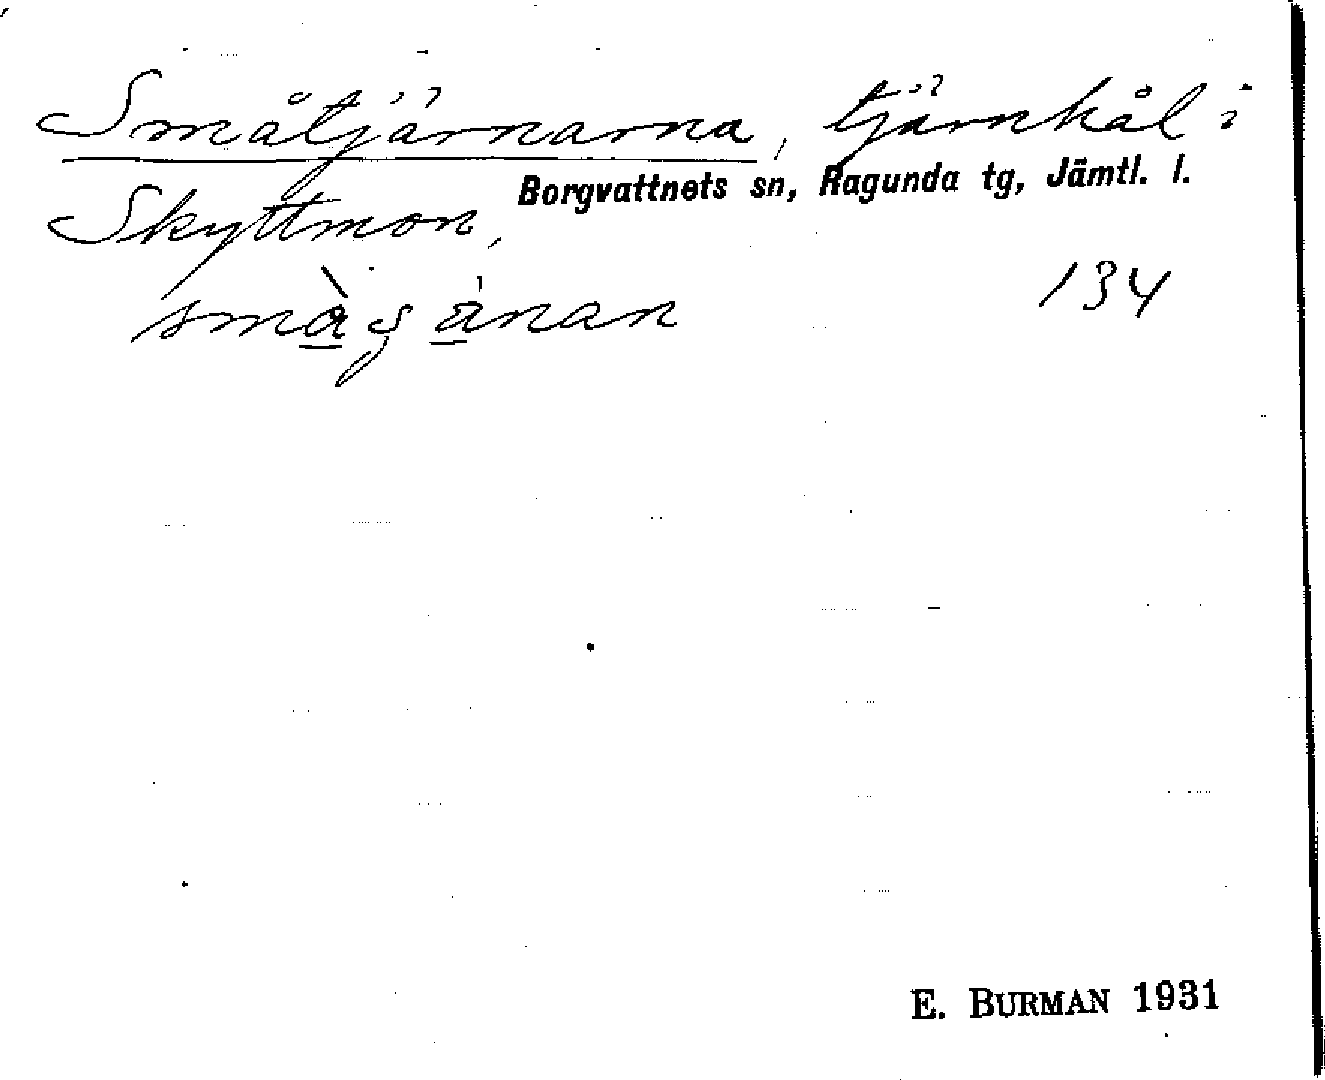 Småtjärnarna, tjärnhål i
Borgvattnets sn, Ragunda tg, Jämtl. l.
Skyttmon,
134
E. BURMAN 1931